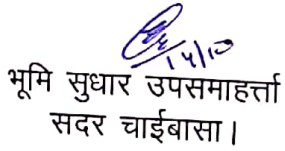 14/10
भूमि सुधार उपसमाहर्त्ता
सदर चाईबासा।